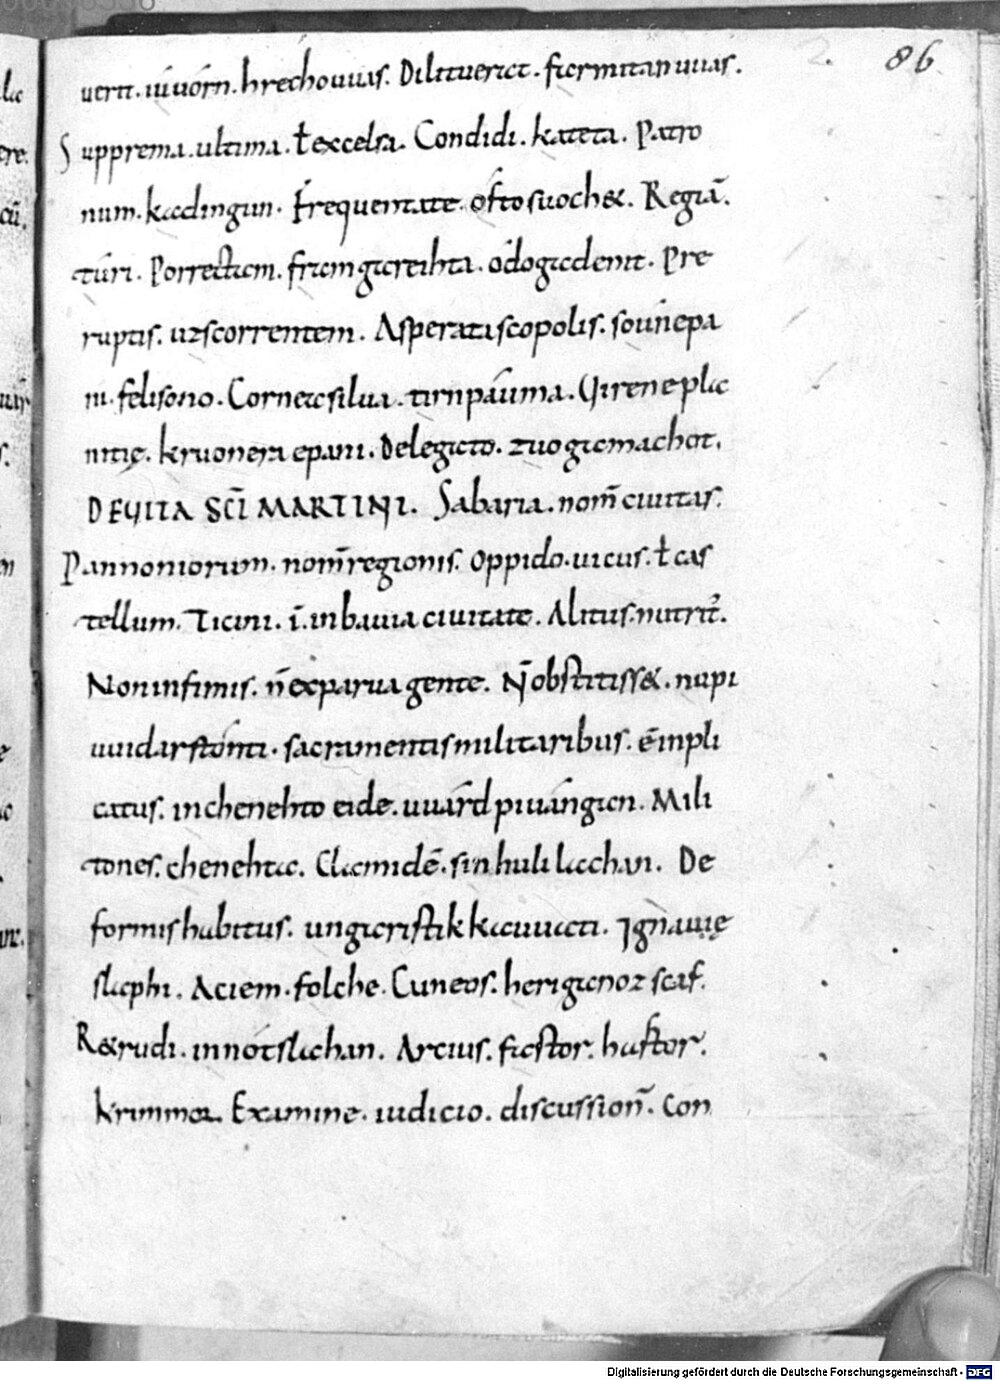 86
uerit. iúuórn. hrechouuas. Dilituerat. farmitan uuas.
Supprema. ultima. ł excelsa. Condidi. kateta. Patro
num. kadingun. Frequentate. ófto suoch&. Regiā.
túri. Porrectam. framgareihta. ódogadenit. Pre
ruptis. uzscorrentem. Asperatiscopolis. souńepa
ni. felisono. Cornea silua. tirnpáuma. Girene pla
nitię. kruonera epani. Delegato. zuo gamachot.
DE UITA SC̄I MARTINI. Sabaria. nom̄ ciuitas.
Pannoniorum. nom̄ regionis. Oppido. uicus. ł cas
tellum. Ticini. i̅. in bauia ciuitate. Alitus. nutrit᷑.
Non infimis. n̄ ex parua gente. N̄ obstitiss&. nupi
uuidarstónti. sacramentis militaribus. ē inpli
catus. in chenehto eide. uuárd piuángan. Mili
tones. chenehta. Clamidē. sin huli lachan. De
formis habitus. ungaristik kauuati. Ignauię
slaphi. Aciem. folche. Cuneos. heriganozscaf.
R& rudi. in nót slachan. Arcius. fastor. hastor.
krimmor. Examine. iudicio. discussion̄. Con
Digitalisierung gefördert durch die Deutsche Forschungsgemeinschaft - DFG